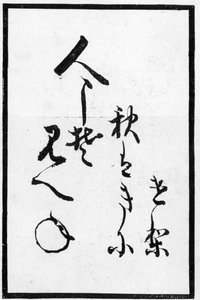 人こそ
見えね
秋はきに
けり